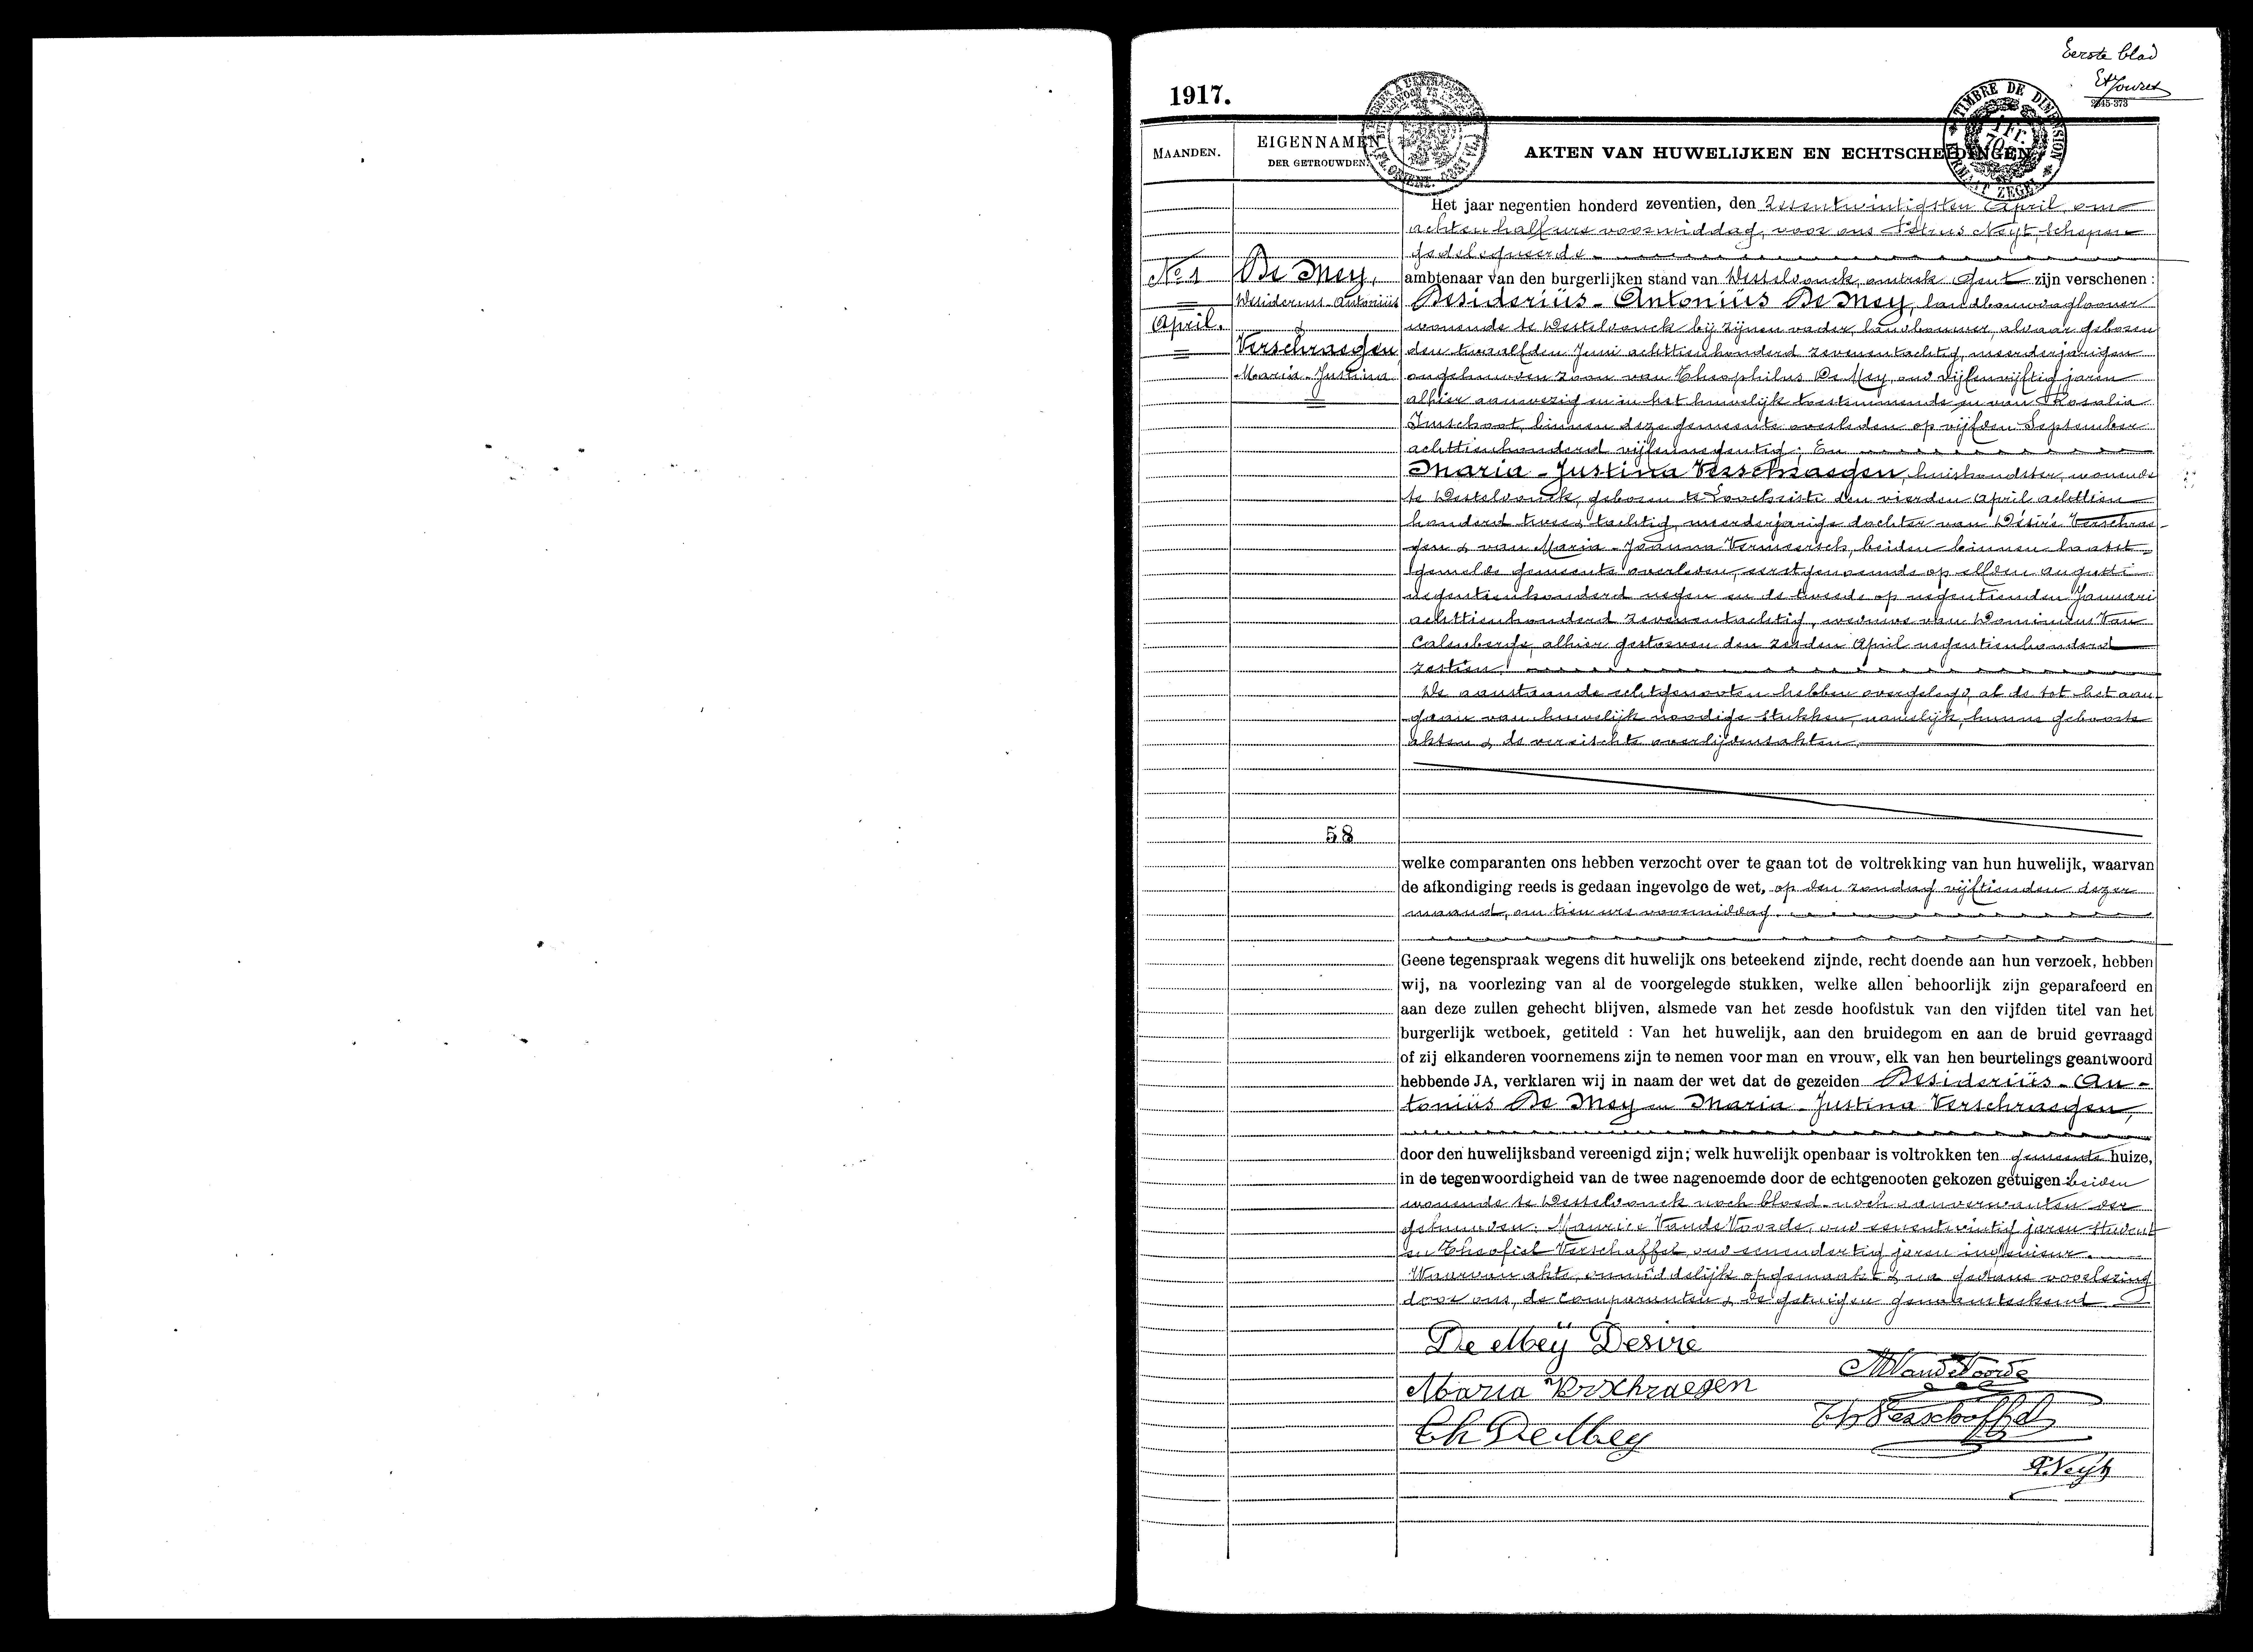 Eerste blad
1917.
2345-373
TIMBRE DE DIMENSION
1 Fr.
FORMAAT ZEGEL
MAANDEN.
EIGENNAMEN
DER GETROUWDEN.
AKTEN VAN HUWELIJKEN EN ECHTSCHEIDINGEN
Het jaar negentien honderd zeventien, den zesentwintigsten April, om
achten half ure voormiddag, voor ons Petrus Neyt, schepen
gedelegueerde
ambtenaar van den burgerlijken stand van Westelvonck, omtrek Gent zijn verschenen :
No 1
De Mey,
Desiderius Antoniüs
&
April.
Verschraegen
Maria-Justina
Desideriüs-Antoniüs De Mey, landbouwdaglooner
wonende te Destelvonck bij zijnen vader, landbouwer, aldaar geboren
den twaalfden Juni achttienhonderd zevenentachtig, meerderjarigen
ongehuwden zoon van Theophilus De Mey, oud vijfenvijftig jaren
alhier aanwezig en in het huwelijk toestemmende en van Rosalia
Imschoot, binnen deze gemeente overleden op vijfden September
achttienhonderd vijfennegentig; En
Maria-Justina Verschraegen, huishoudster, wonende
te Destelvonck, geboren te Loochristi den vierden April achttien
honderd twee & tachtig, meerderjarige dochter van Désiré Verschrae-
gen & van Maria-Joanna Vermeersch, beiden binnen laatst
gemelde gemeente overleden, eerstgenoemde op elfden Augusti
negentienhonderd negen en de tweede op negentienden Januari
achttienhonderd zevenentachtig, weduwe van Dominicus Van
Calenberge, alhier gestorven den zesden April negentienhonderd
zestien.
De aanstaande echtgenooten hebben overgelegd, al de tot het aan-
gaan van huwelijk noodige stukken, namelijk, hunne geboorte
akten & de vereischte overlijdensakten.
58
welke comparanten ons hebben verzocht over te gaan tot de voltrekking van hun huwelijk, waarvan
de afkondiging reeds is gedaan ingevolge de wet, op den zondag vijftienden dezer
maand, om tien ure voormiddag.
Geene tegenspraak wegens dit huwelijk ons beteekend zijnde, recht doende aan hun verzoek, hebben
wij, na voorlezing van al de voorgelegde stukken, welke allen behoorlijk zijn geparafeerd en
aan deze zullen gehecht blijven, alsmede van het zesde hoofdstuk van den vijfden titel van het
burgerlijk wetboek, getiteld : Van het huwelijk, aan den bruidegom en aan de bruid gevraagd
of zij elkanderen voornemens zijn te nemen voor man en vrouw, elk van hen beurtelings geantwoord
hebbende JA, verklaren wij in naam der wet dat de gezeiden Desideriüs-An-
toniüs De Mey en Maria-Justina Verschraegen,
door den huwelijksband vereenigd zijn; welk huwelijk openbaar is voltrokken ten gemeente huize,
in de tegenwoordigheid van de twee nagenoemde door de echtgenooten gekozen getuigen : beiden
wonende te Destelvonck noch bloed- noch aanverwanten der
gehuwden: Maurice Vande Voorde, oud eenentwintig jaren student
en Theofiel Verschaffel, oud eenendertig jaren ingenieur.
Waarvan akte, onmiddelijk opgemaakt & na gedane voorlezing
door ons, de comparanten & de getuigen genaamteekend
De Meÿ Desiré
M VandeVoorde
Maria Verschraegen
Th Verschaffel
Th De Mey
P. Neyt